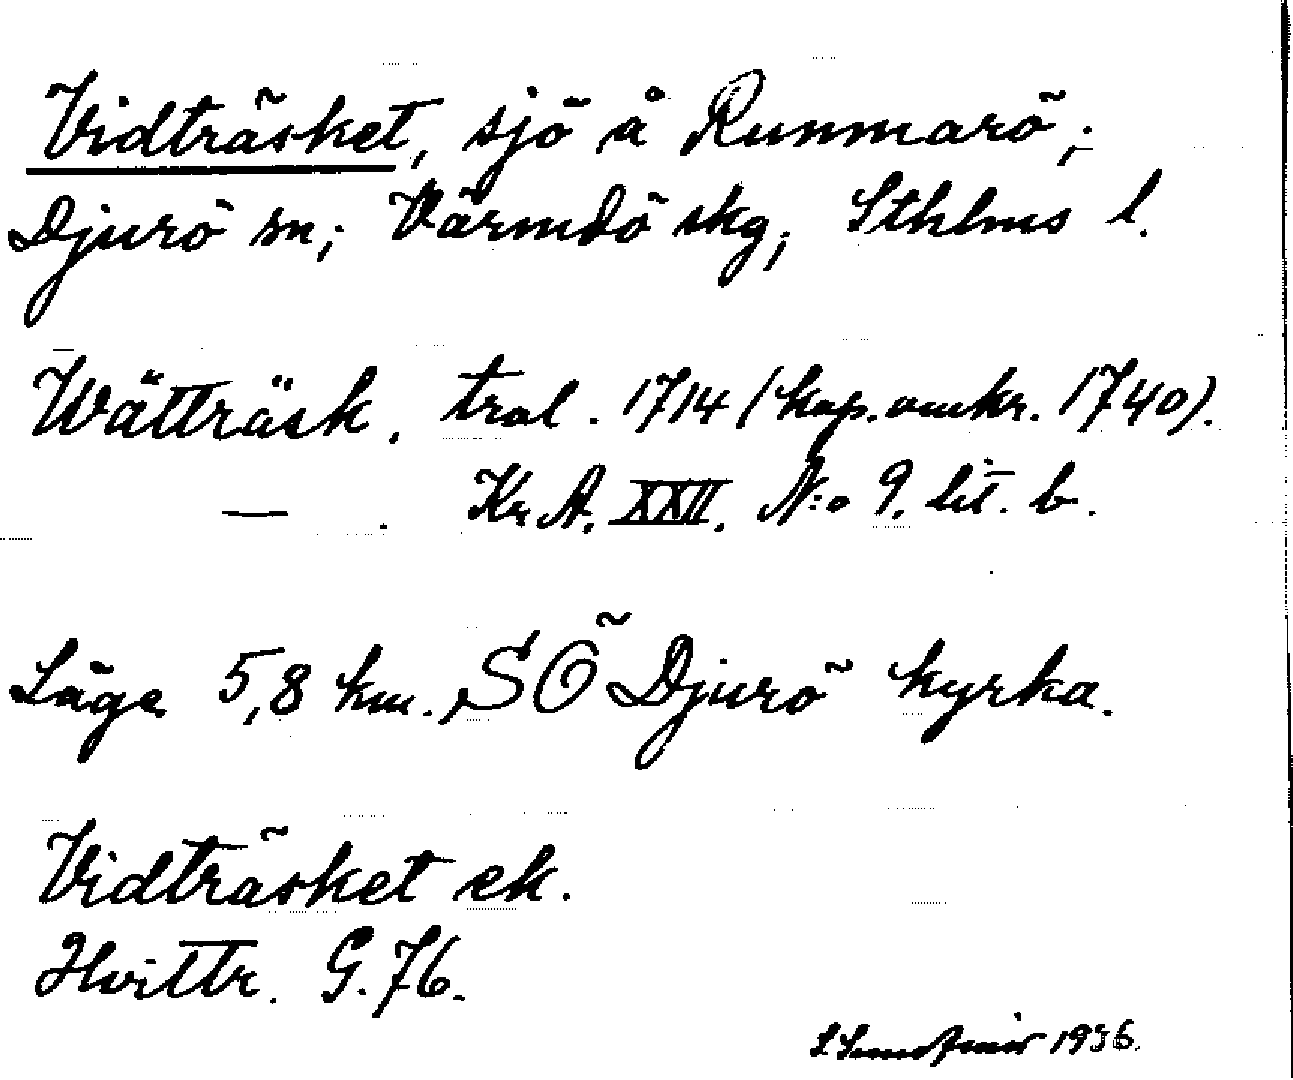 Vidträsket, sjö å Runmarö;
Djurö sn; Värmdö skg; Sthlms l.
Wätträsk. tral. 1714 (kop. omkr. 1740).
— . Kr. A. XXII. N:o 9. lit. b.
Läge 5,8 km. SÖ Djurö kyrka.
Vidträsket ek.
Hvittr. G. 76.
1936.